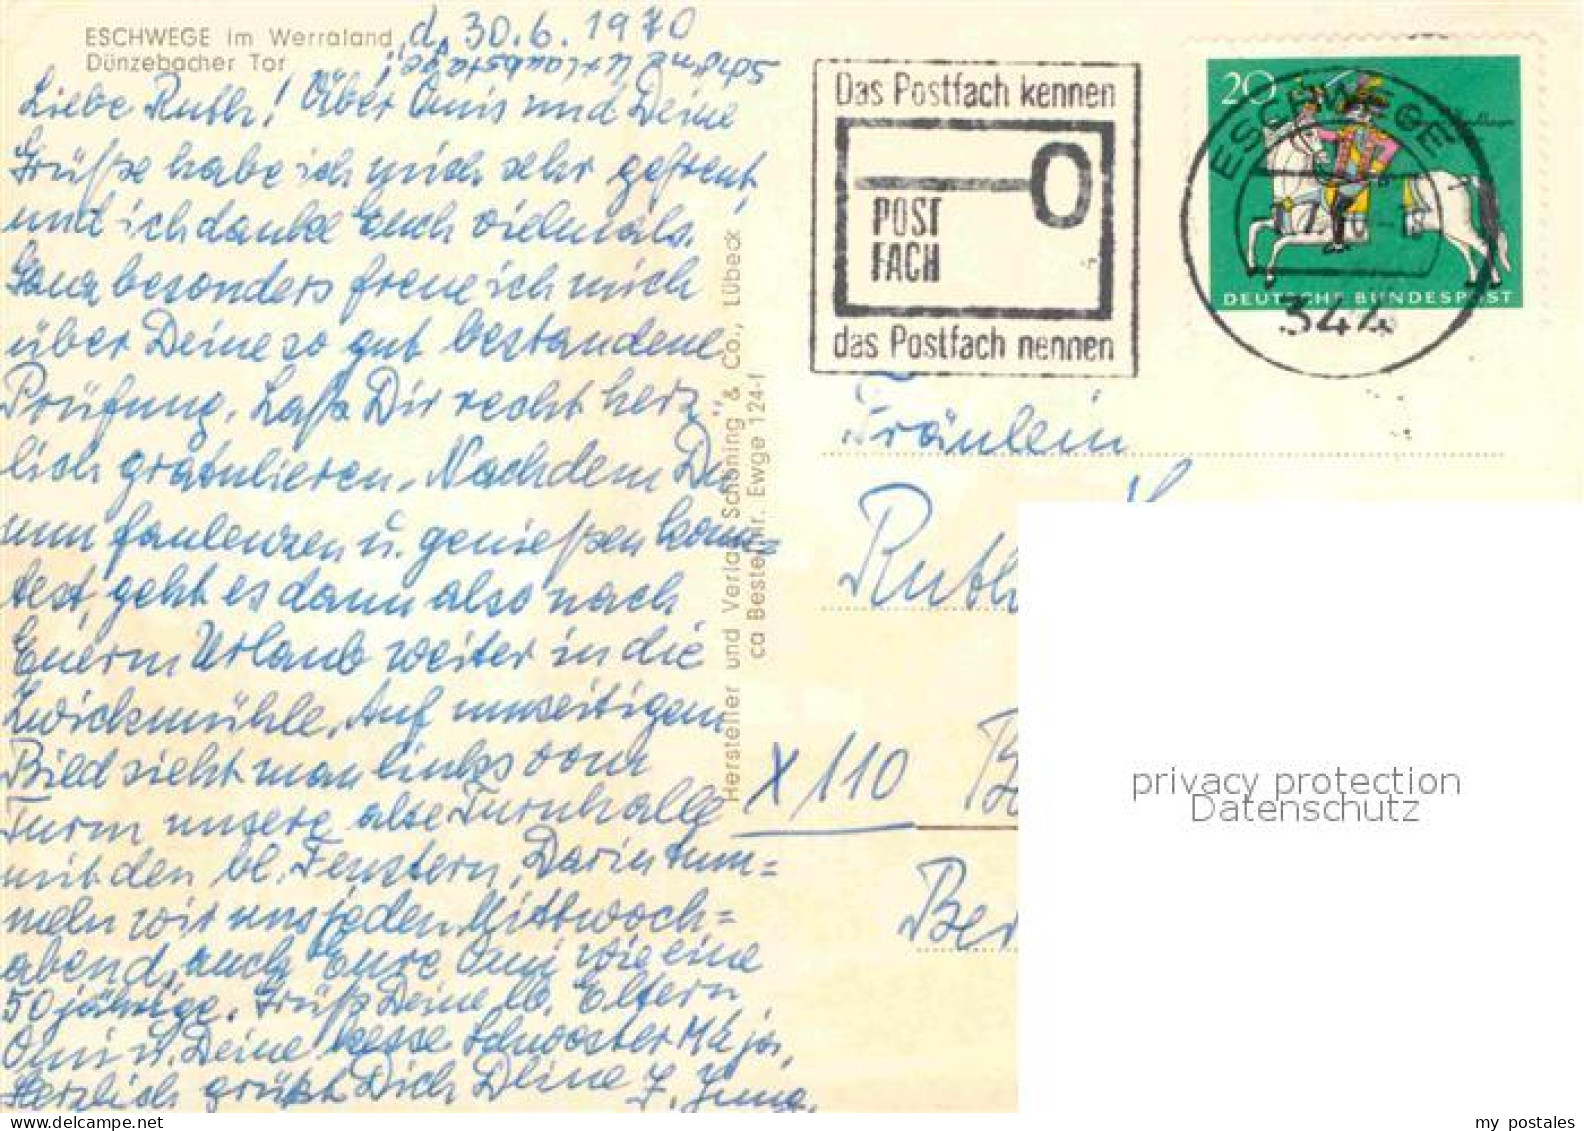 ESCHWEGE im Werraland
Dünzebacher Tor
d. 30.6.1970
Schöne Urlaubstage!
Liebe Ruth! Über Omis und Deine
Grüße habe ich mich sehr gefreut,
und ich danke Euch vielmals.
Ganz besonders freue ich mich
über Deine so gut bestandene
Prüfung. Laß Dir recht herz
lich gratulieren. Nachdem Du
nun faulenzen u. genießen konn=
test, geht es dann also nach
Euerm Urlaub weiter in die
Zwickmühle. Auf umseitigem
Bild sieht man links vom
Turm unsere alte Turnhalle
mit den bl. Fenstern. Darin tum=
meln wir uns jeden Mittwoch=
abend, auch Eure Omi wie eine
50 jährige. Grüß Deine lb. Eltern
Omi u. Deine kesse Schwester
Herzlich grüßt Dich Deine
Hersteller und Verlag Schöning & Co., Lübeck
ca Bestell-Nr. Ewge 124-f
Das Postfach kennen
POST
FACH
das Postfach nennen
20
DEUTSCHE BUNDESPOST
ESCHWEGE
344
Fräulein
Ruth
X/110
Ber
privacy protection
Datenschutz
my postales